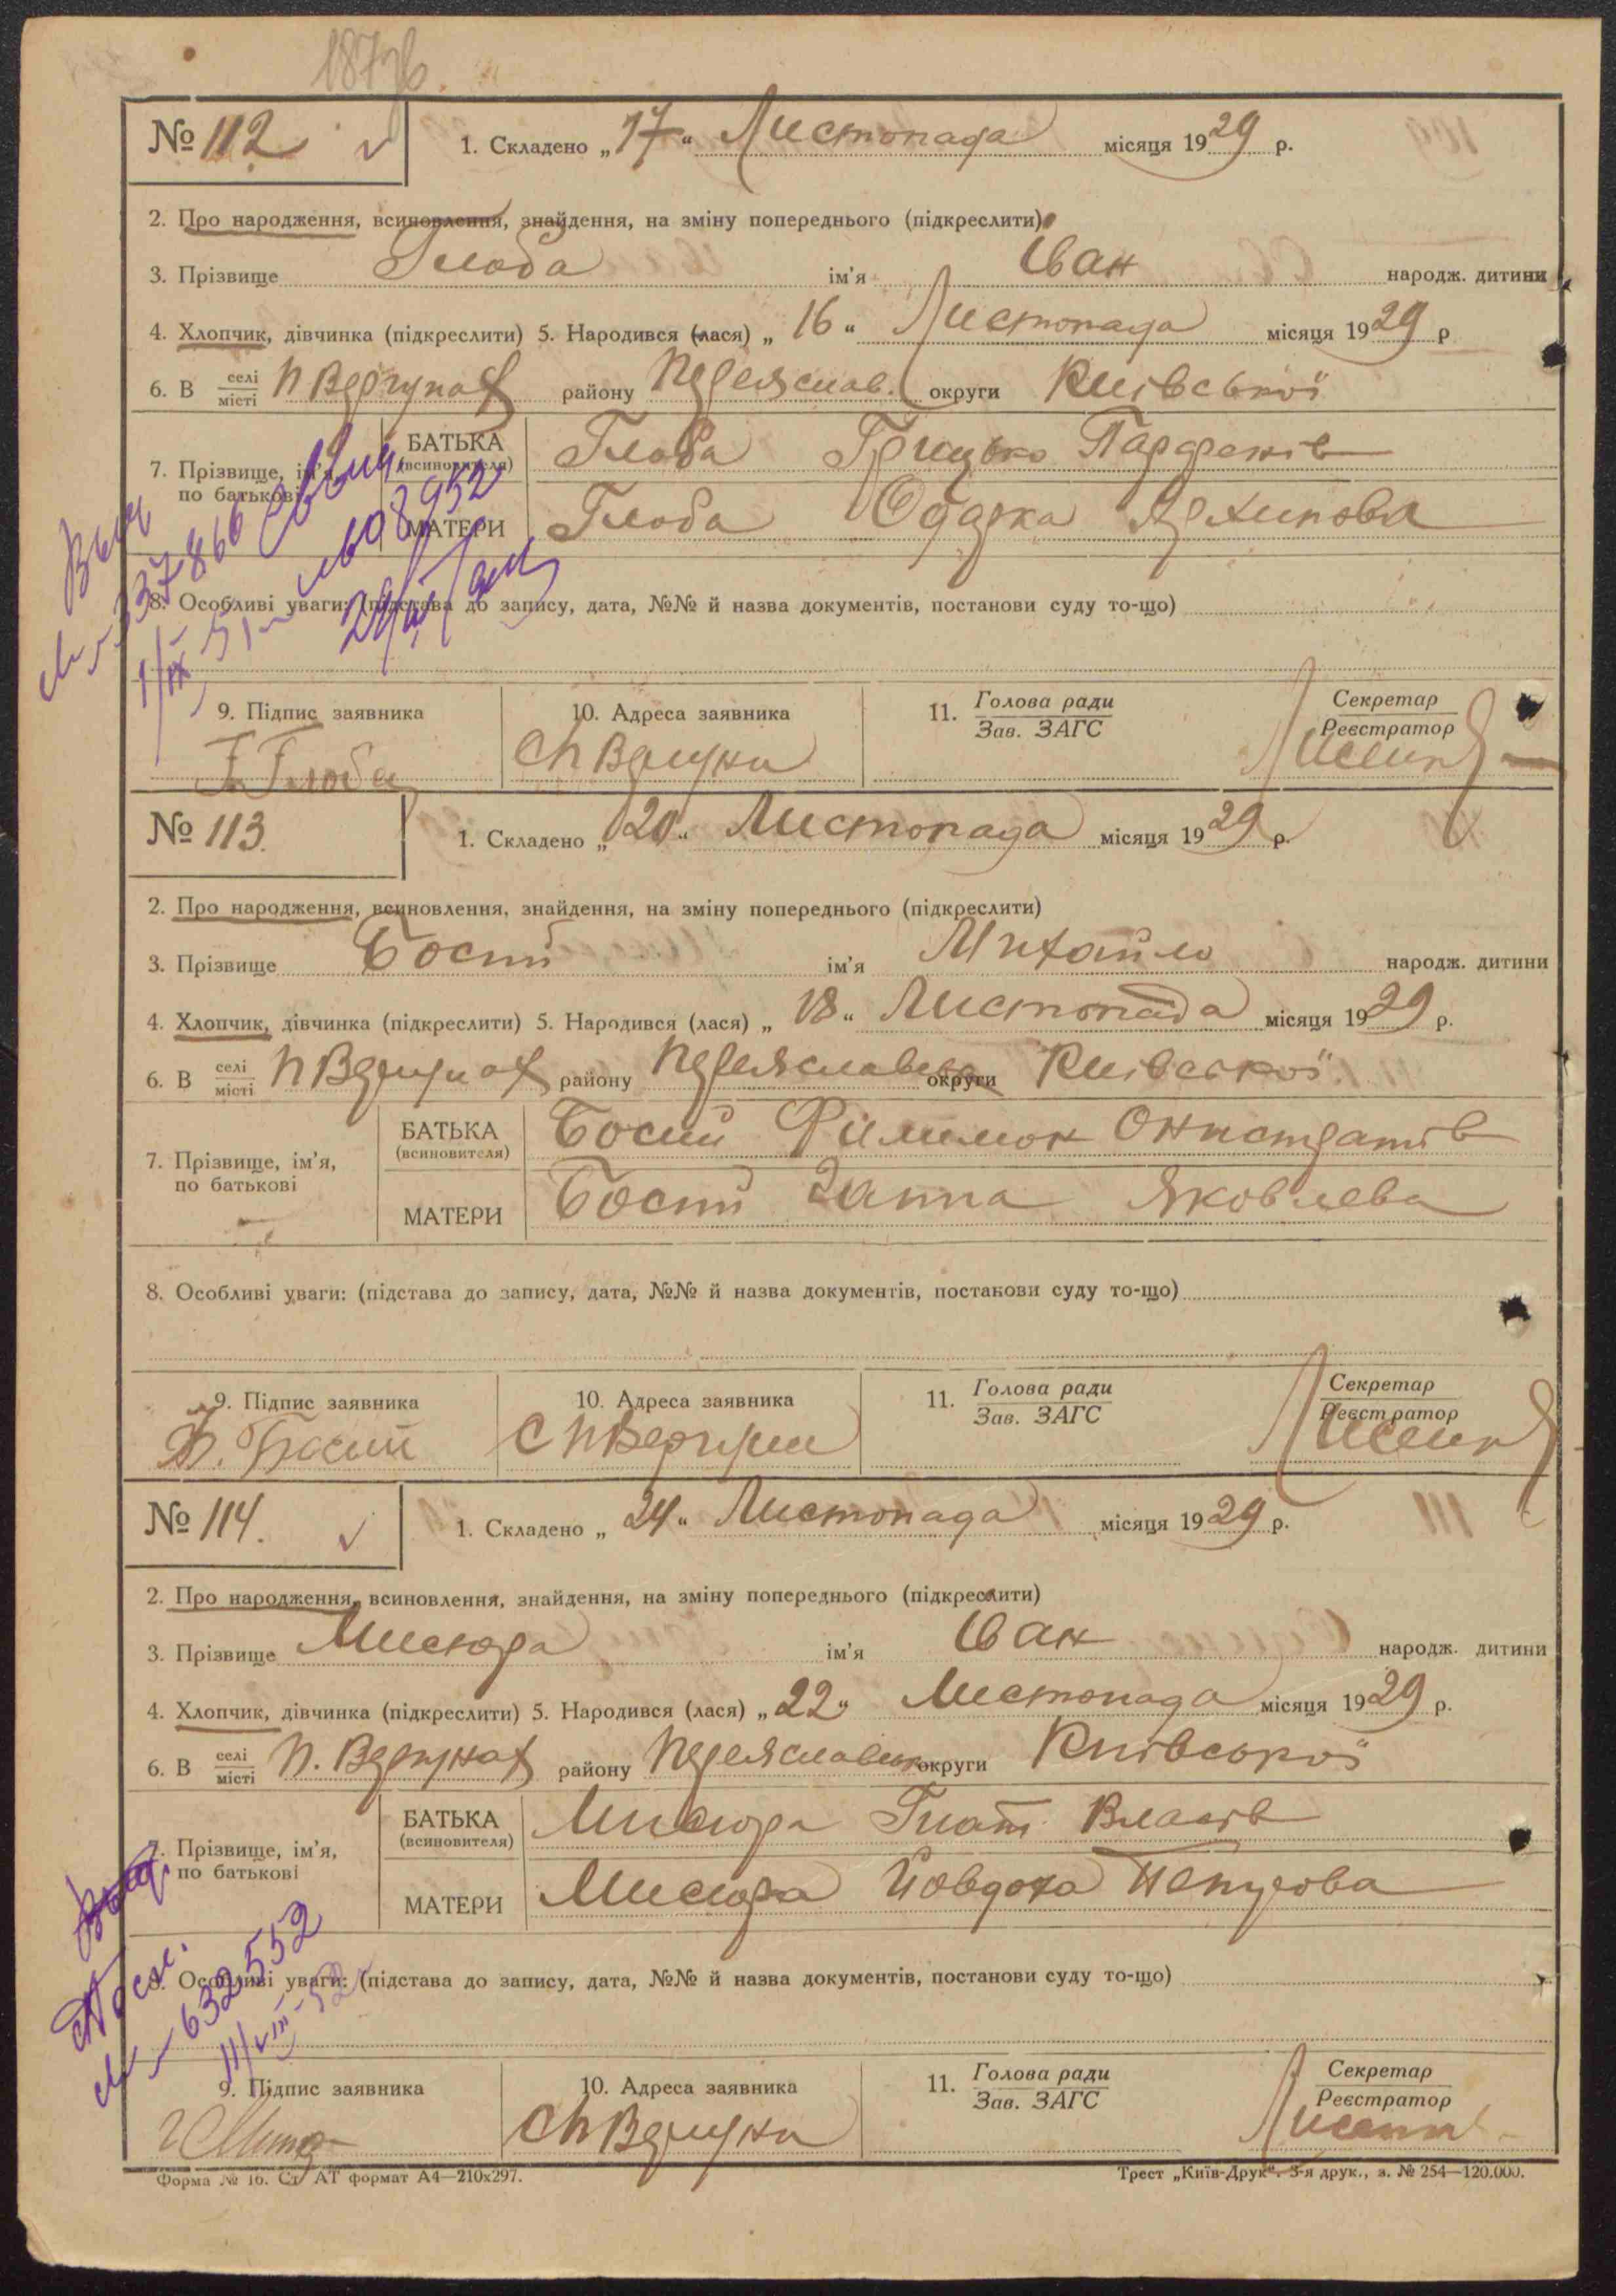 187зв.
№ 112 1. Складено „17“ Листопада місяця 1929 р.
2. Про народження, всиновлення, знайдення, на зміну попереднього (підкреслити)
3. Прізвище Глоба ім'я Іван народж. дитини
4. Хлопчик, дівчинка (підкреслити) 5. Народився (лася) „16“ Листопада місяця 1929 р
6. В селі місті П Вергунах району Переяслав. округи Київської
7. Прізвище, ім'я, по батькові
БАТЬКА (всиновителя) Глоба Грицько Парфенів
МАТЕРИ Глоба Одарка Архипова
8. Особливі уваги: (підстава до запису, дата, №№ й назва документів, постанови суду то-що)
9. Підпис заявника 10. Адреса заявника 11. Голова ради Зав. ЗАГС Секретар Реєстратор
Г Глоба С П Вергуни
№ 113. 1. Складено „20“ Листопада місяця 1929 р.
2. Про народження, всиновлення, знайдення, на зміну попереднього (підкреслити)
3. Прізвище Босий ім'я Михайло народж. дитини
4. Хлопчик, дівчинка (підкреслити) 5. Народився (лася) „18“ Листопада місяця 1929 р.
6. В селі місті П Вергунах району Переяславськ округи Київської
7. Прізвище, ім'я, по батькові
БАТЬКА (всиновителя) Босий Филимон Онистратів
МАТЕРИ Босий Ганна Яковлева
8. Особливі уваги: (підстава до запису, дата, №№ й назва документів, постанови суду то-що)
9. Підпис заявника 10. Адреса заявника 11. Голова ради Зав. ЗАГС Секретар Реєстратор
Ф. Босий С П Вергуни
№ 114. 1. Складено „24“ Листопада місяця 1929 р.
2. Про народження, всиновлення, знайдення, на зміну попереднього (підкреслити)
3. Прізвище Мисюра ім'я Іван народж. дитини
4. Хлопчик, дівчинка (підкреслити) 5. Народився (лася) „22“ Листопада місяця 1929 р.
6. В селі місті П. Вергунах району Переяславськ округи Київської
7. Прізвище, ім'я, по батькові
БАТЬКА (всиновителя) Мисюра Гнат Власів
МАТЕРИ Мисюра Йовдоха
8. Особливі уваги: (підстава до запису, дата, №№ й назва документів, постанови суду то-що)
632552
11/VIII-52
9. Підпис заявника 10. Адреса заявника 11. Голова ради Зав. ЗАГС Секретар Реєстратор
С П Вергуни
Форма № 16. Ст. АТ формат А4—210х297. Трест „Київ-Друк“. 3-я друк., з. № 254—120.000.